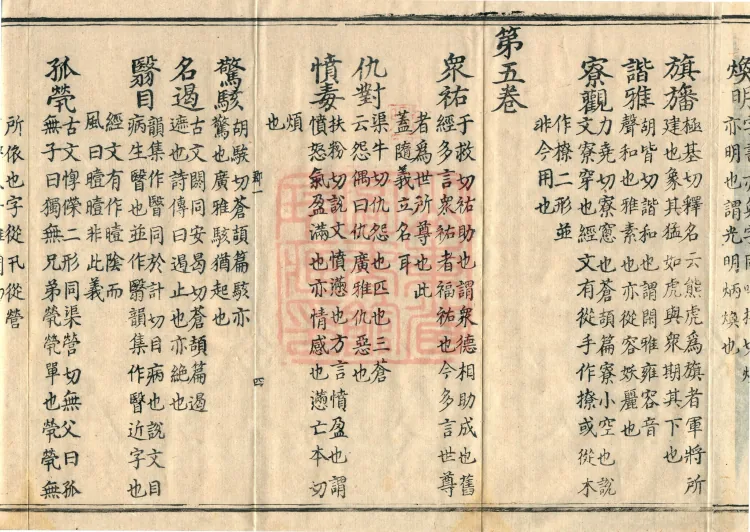 煥
明也亦明也謂光明炳煥也
旗旛
極基切釋名云熊虎爲旗者軍將所
建也象其猛如虎與衆期其下也
諧雅
胡皆切諧和也謂閑雅雍容音
聲和也雅素也亦從容妖麗也
寮觀
力堯切寮窓也蒼頡篇寮小空也說
文寮穿也經文有從手作撩或從木
作橑二形並
非今用也
第五卷
衆祐
于救切祐助也謂衆德相助成也舊
經多言衆祐者福祐也今多言世尊
者爲世所尊也此
蓋隨義立名耳
仇對
渠牛切仇怨也匹也三蒼
云怨偶曰仇廣雅仇惡也
憤毒
扶粉切說文憤懣也方言憤盈也謂
憤怒氣盈滿也亦情感也懣亡本切
煩
也
驚駭
胡騃切蒼頡篇駭亦
驚也廣雅駭猶起也
四
名遏
古文閼同安曷切蒼頡篇遏
遮也詩傳曰遏止也亦絶也
翳目
韻集作瞖同於計切目病也說文目
病生瞖也並作翳韻集作瞖近字也
經文有作曀陰而
風曰曀曀非此義
孤煢
古文惸㷀二形同渠營切無父曰孤
無子曰獨無兄弟煢煢單也煢煢無
所依也字從卂從營